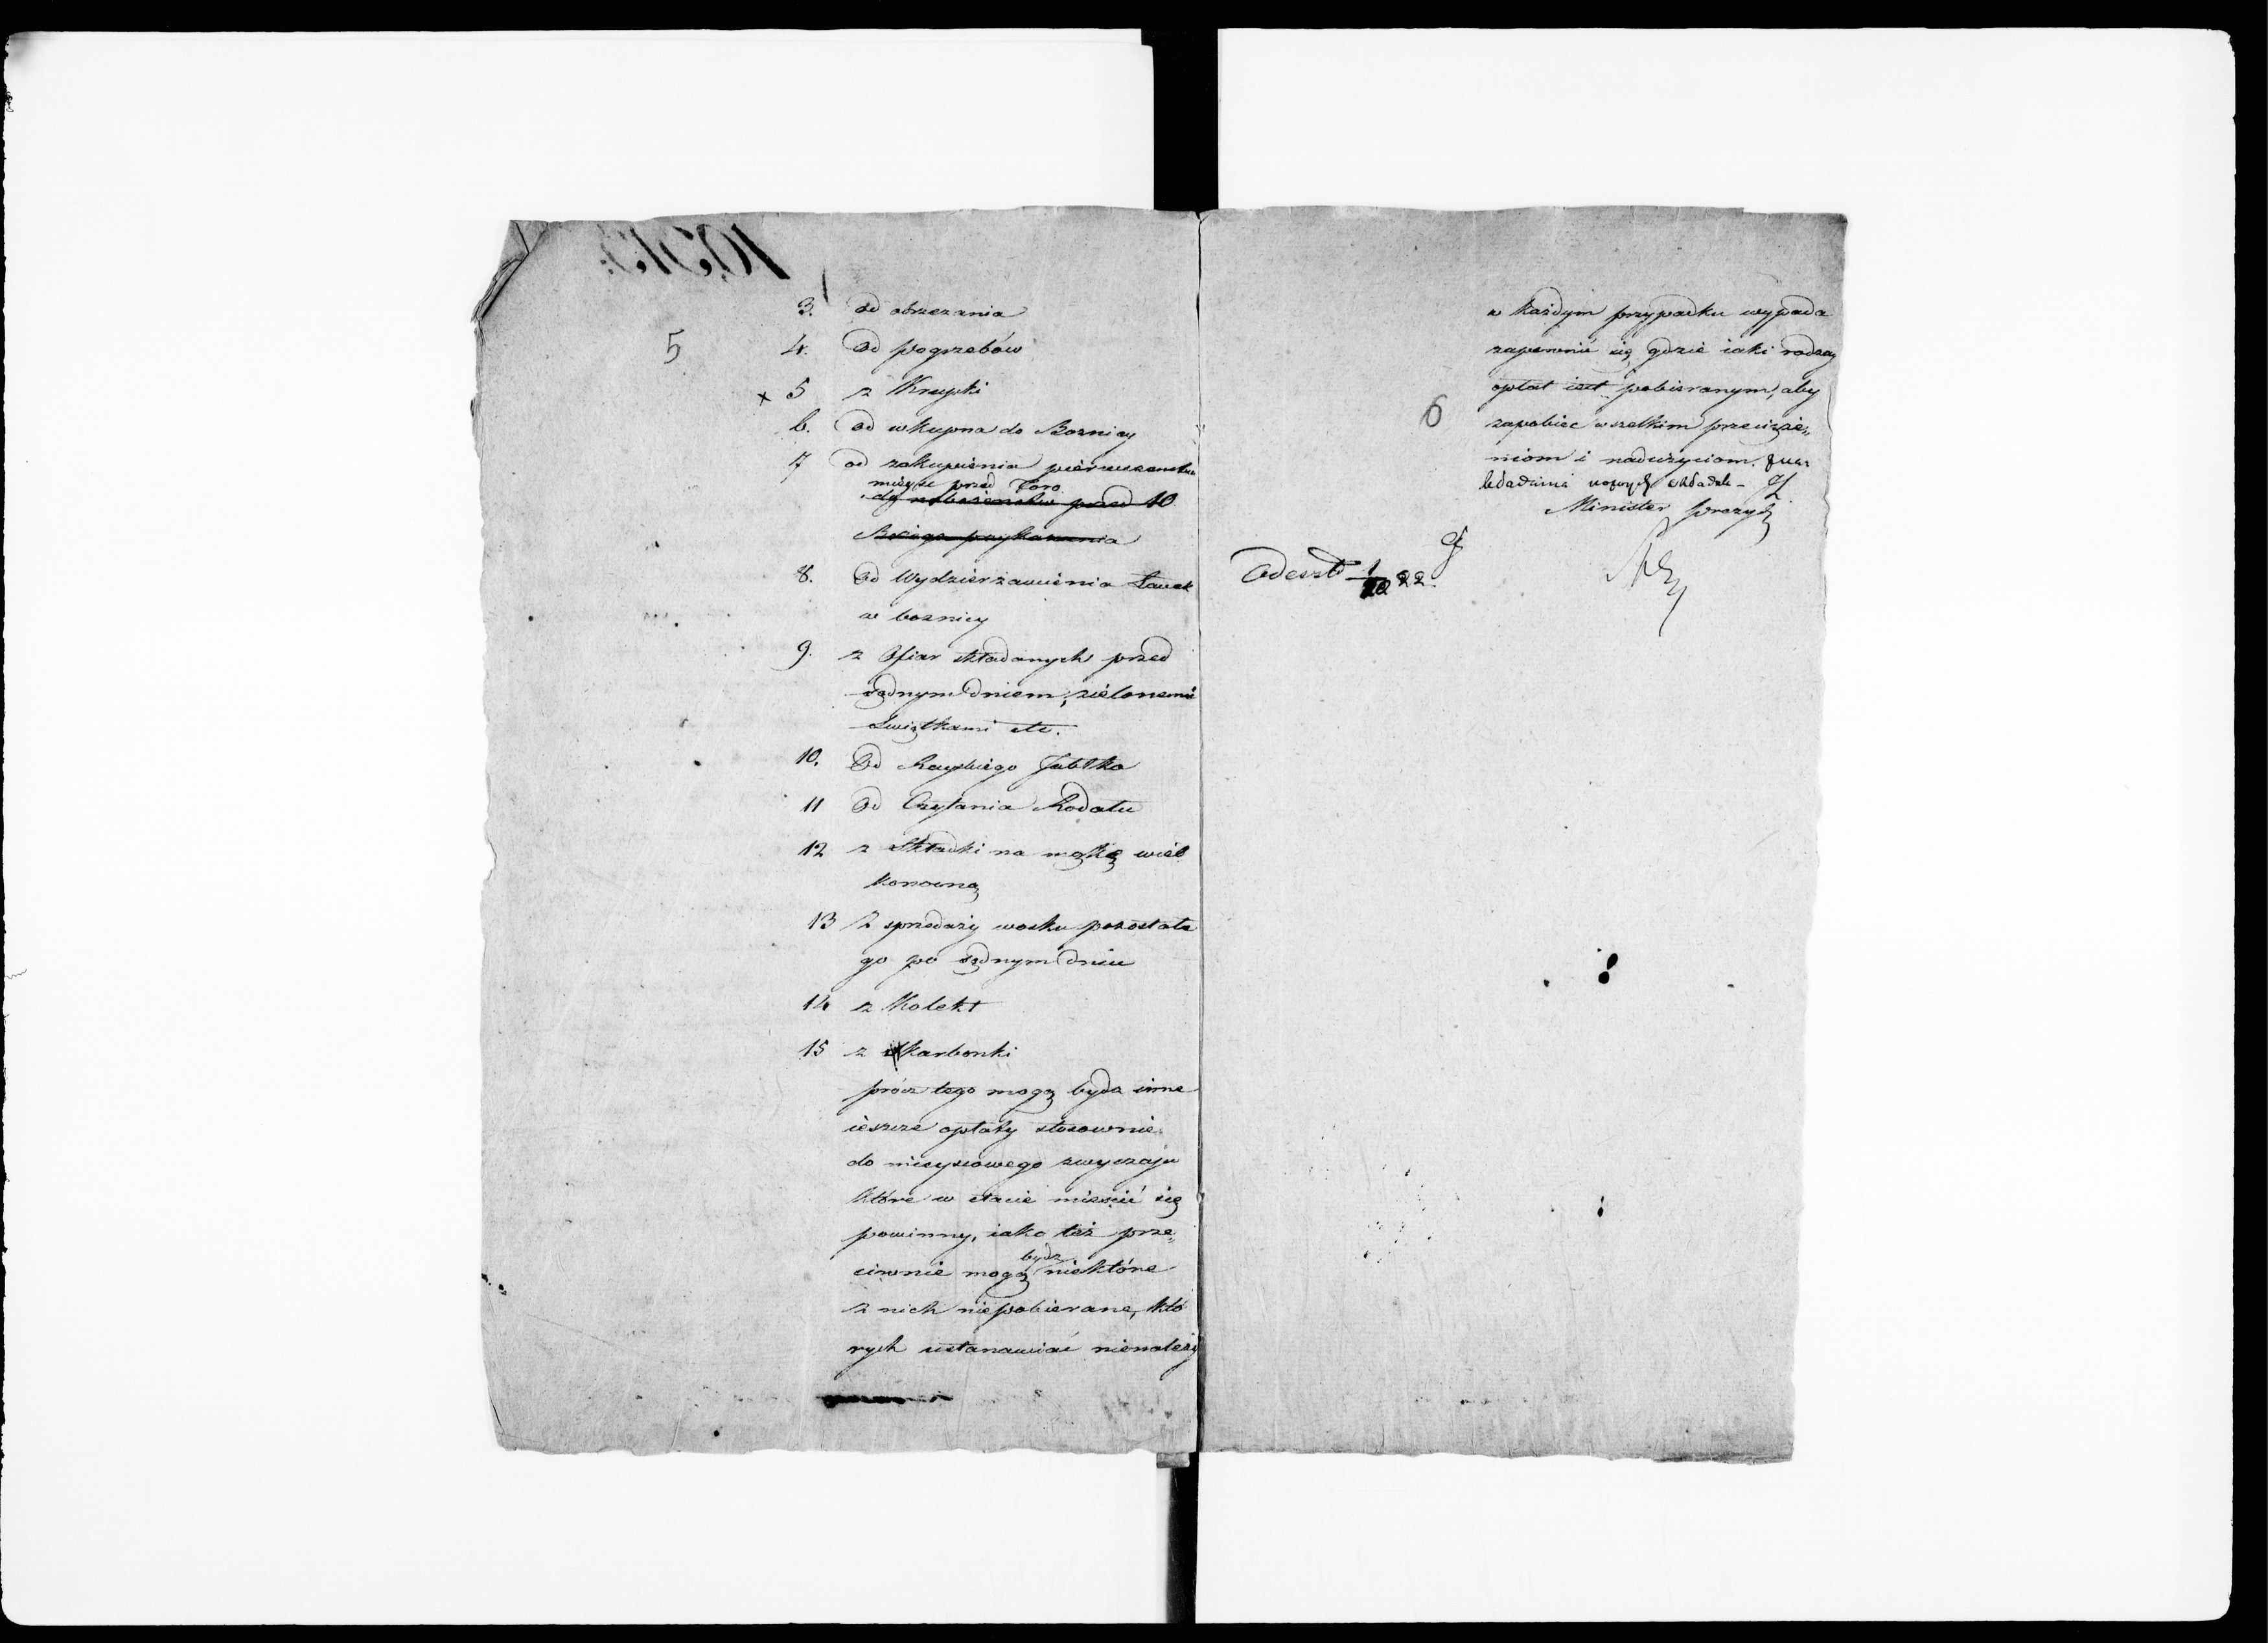 5
3. od obrzezania
4. Od pogrzebów
x 5 z Krupki
6. Od wkupna do Boznicy
7 od zakupienia pierwszeństwa
mieysc przed Toro
do nabożeństwa przed 10
Bożego przykazania
8. Od Wydzierżawienia Ławek
w boznicy
9. z Ofiar składanych przed
sądnym dniem, zielonemi
Swiątkami etc.
10. Od Rayskiego Jabłka
11 Od Czytania Rodału
12 z Składki na mąkę wiel
konocną
13 Z sprzedaży wosku pozostałe
go po sądnym dniu
14 z Kolekt
15 z skarbonki
prócz tego mogą bydz inne
ieszcze opłaty stosownie
do mieyscowego zwyczaju
które w etacie mieścić się
powinny, iako też prze„
bydz
ciwnie mogą niektóre
z nich niepobierane, któ
rych ustanawiać nienależy
6
w każdym przypadku wypada
zapewnić się gdzie iaki rodzay
opłat iest pobieranym, aby
zapobiec wszelkim przeciąże„
niom i nadużyciom.
nowych składek –
Minister prezyd
Odeszło 1/10 22.